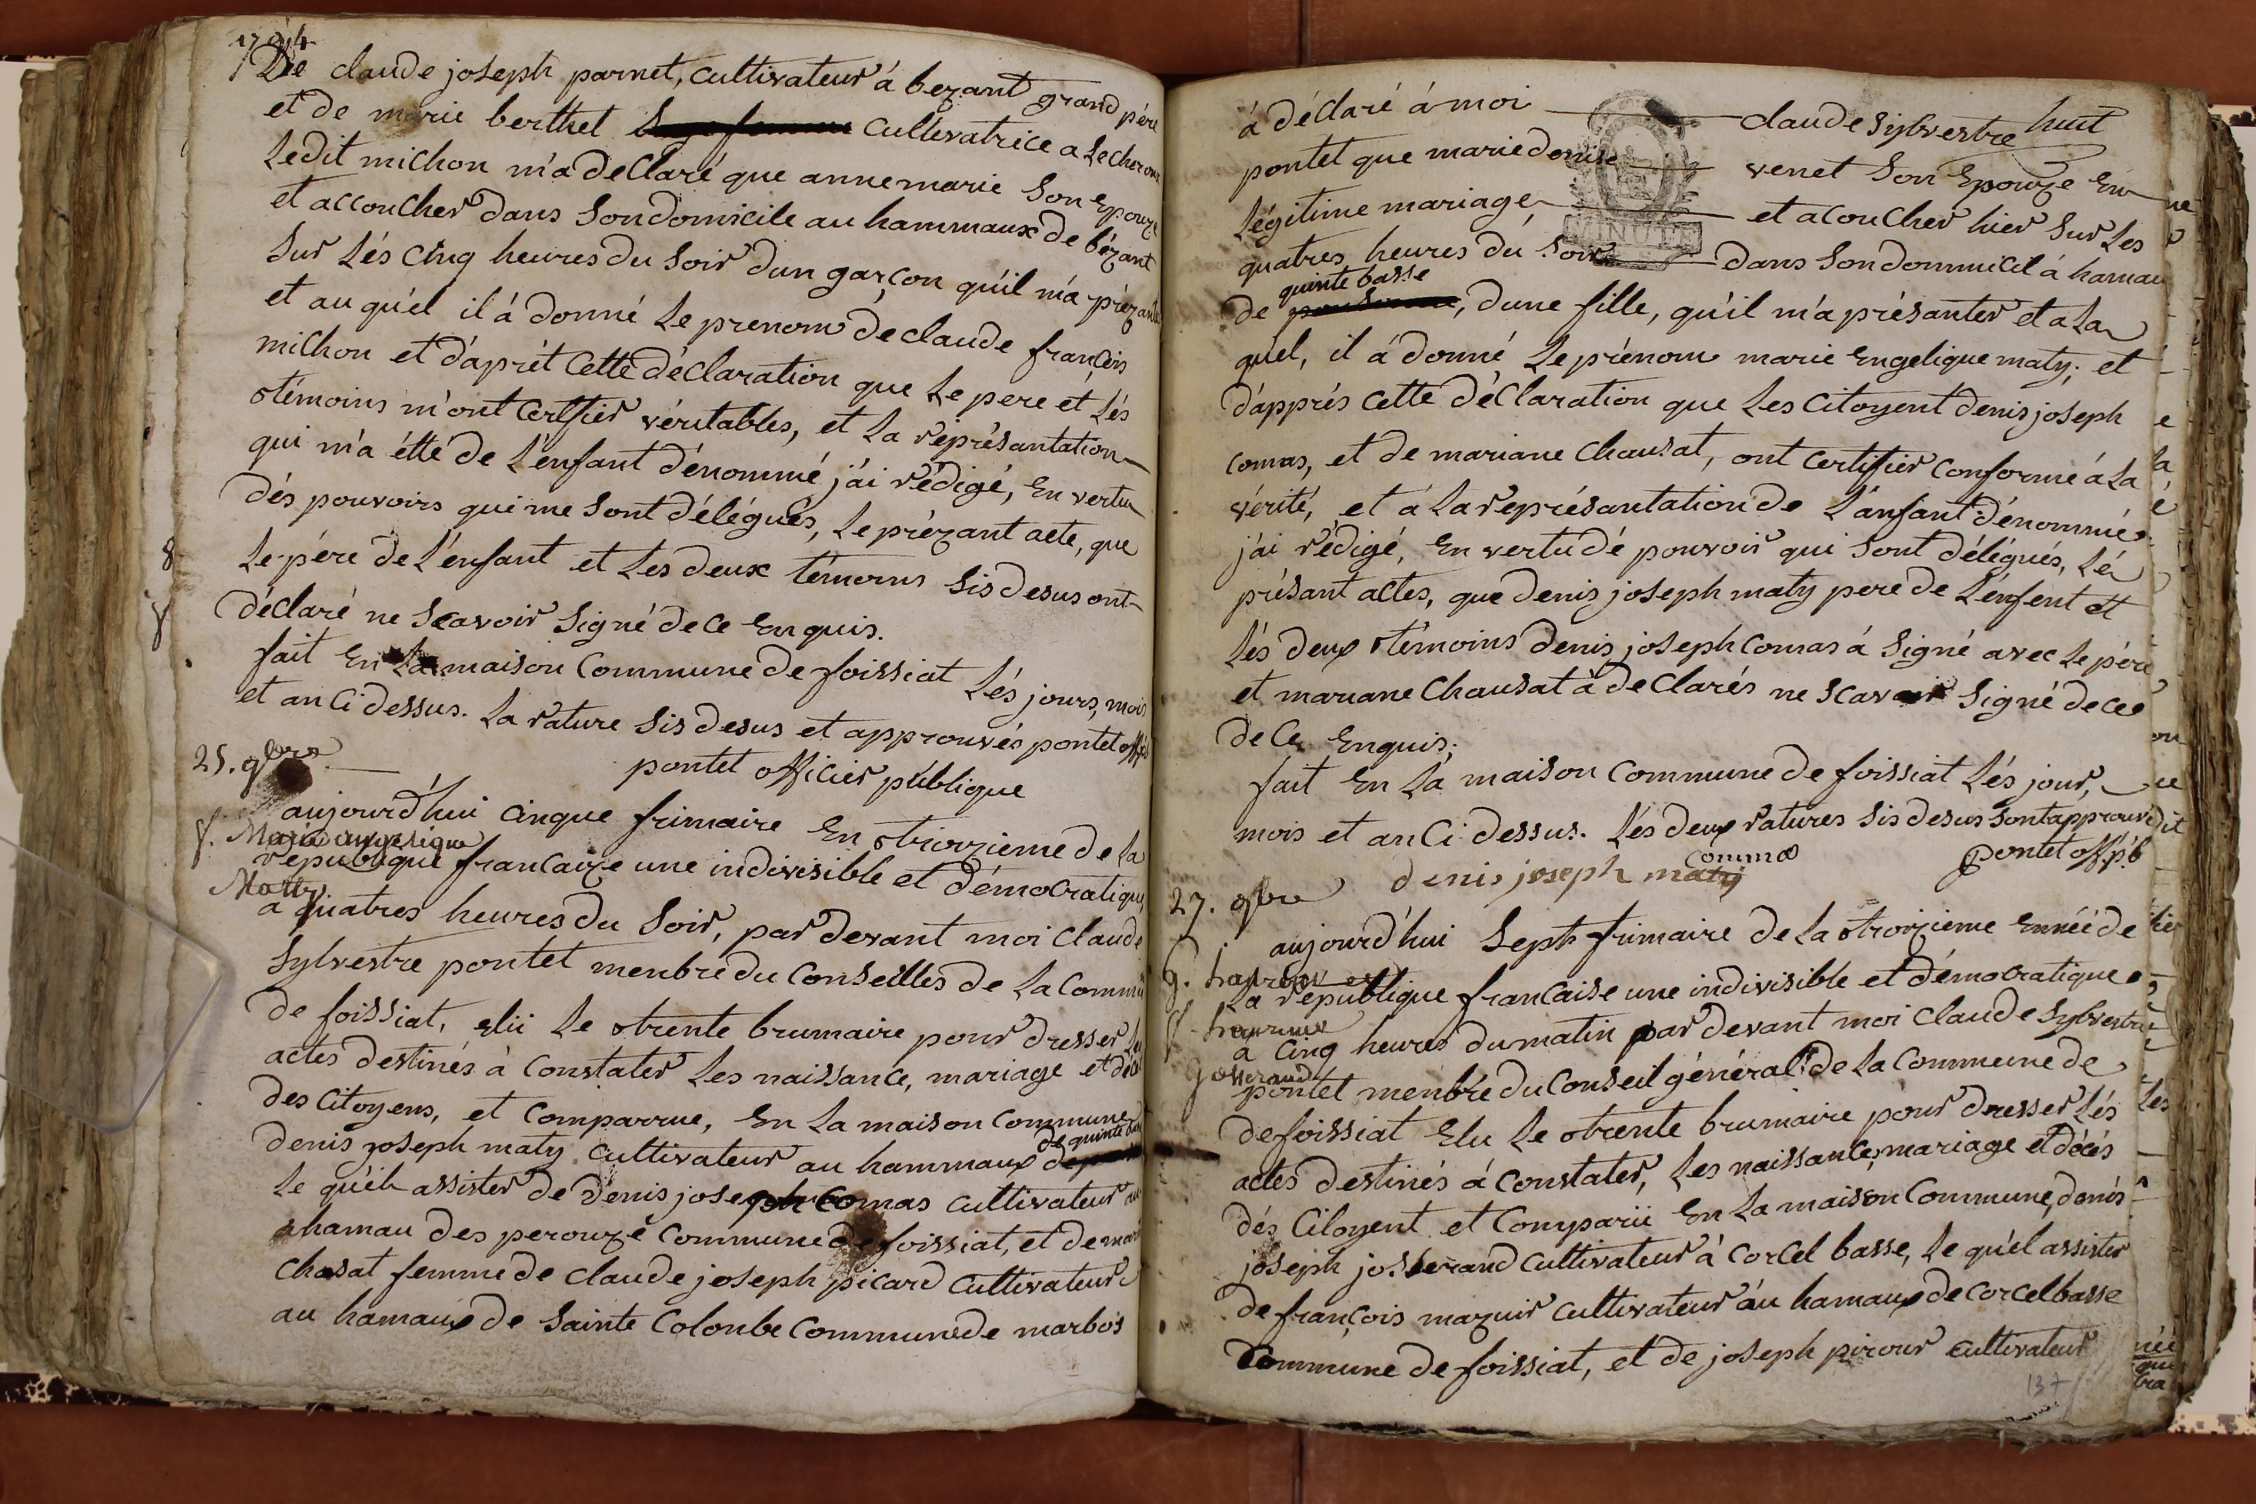 1794
De claude joseph parnet, cultivateur á bezant grand pére
et de marie berthet cultivatrice a Lecheroux
Ledit michon m'a déClaré que anne marie Son Epouze
et accoucher dans Son domicile au hammaux de bézant
Sur Lés cinq heures du Soir dun garçon quil m'a prézanté
et au quél il á donné Le prenom de claude françois
milhon et d'aprét Cette déclaration que Le pere ét Lés
témoins m'ont certifier véritables, et La réprésantation
qui m'a étté de L'enfant dénommé j'ai rédigé, En vertu
dés pouvoirs qui me Sont délégués, Le prézant acte, que
Le pére de L'enfant et Les deux témoins sis desus ont
déclaré ne Scavoir Signé de Ce Enquis.
fait En La maison Commune de foissiat Lés jours, mois
et an Ci dessus. La rature Sis desus et approuvés pontet off
pontet officier publique
25. 9bre
aujourd'hui cinque frimaire En troizieme de La
f. Marie angelique
republique francaize une indivisible et démocratique
Maty
a quatres heures du Soir, par devant moi Claude
Sylvestre pontet menbre du Conseilles de La Commune
de foissiat, elii Le trente brumaire pour dresser Les
actes destinés à Constater Les naissance, mariage et décé
des Citoyens, et Comparrue, En La maison Commune
de quinte basse
denis joseph maty cultivateur au hammaux
Le quél assister de denis joseph Comas cultivateur au
hamau des perouze Commune de foissiat, et de mari
Chasat femme de Claude joseph picard Cultivateur
au hamaux de Sainte Colonbe Commune de marbos
á déclaré á moi claude Sylvestre huit
pontet que marie denise venet Son Epouze En
Légitime mariage et acoucher hier Sur Les
MINUTE
quatres heures du Soir dans Son dommicil á hamau
quinte basse
de , dune fille, qu'il m'a présanter et a La
quel, il á donné Le prénom marie Engelique maty; et
d'apprés Cette déClaration que Les Citoyent denis joseph
comas, et de mariane Chausat, ont Certifier Conforme á La
vérité, et á La représantation de L'anfant dénommé
j'ai rédigé, En vertu dé pouvoir qui Sont délégués, Lé
présant actes, que denis joseph maty pere de L'énfent et
Lés deux témoins denis joseph Comas á Signé avec Le pére
et mariane Chausat à de Clarés ne Scavoir Signé de ce
de Ce Enquis;
fait En La maison Commune de foissiat Lés jour,
mois et an Ci dessus. Lés deux ratures Sis desus Sont approuvé
denis joseph maty Commas pontet off. p.b
27. 9bre
aujourd'hui Septh frimaire de La troizieme Ennéé de
La republique francaise une indivisible et démocratique
á Cinq heures du matin par devant moi Claude Sylvestre
josserand
pontet menbre du Conseil général de La Commune de
de foissiat Elu Le trente brumaire pour dresser Lés
actes destinés á Constater, Les naissance, mariage et décés
dés Citoyent et Comparii En La maison Commune, denis
joseph josserand Cultivateur à Corcel basse, Le quél assister
de françois mazuir Cultivateur áu hamaux de Corcelbasse
Commune de foissiat, et de joseph pirour Cultivateur
137